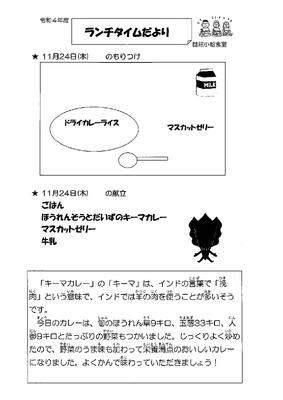 令和4年度
ランチタイムだより
小給食室
★ 11月24日(木) のもりつけ
MILK
ドライカレーライス
マスカットゼリー
★ 11月24日(木) の献立
ごはん
ほうれんそうとだいずのキーマカレー
マスカットゼリー
牛乳
「キーマカレー」の「キーマ」は、インドの言葉で「挽
肉」という意味で、インドでは羊の肉を使うことが多いそう
です。
今日のカレーは、旬のほうれん草9キロ、玉葱33キロ、人
参9キロとたっぷりの野菜もつかいました。じっくりよく炒め
たので、野菜のうま味も加わって栄養満点のおいしいカレー
になりました。よくかんで味わっていただきましょう!